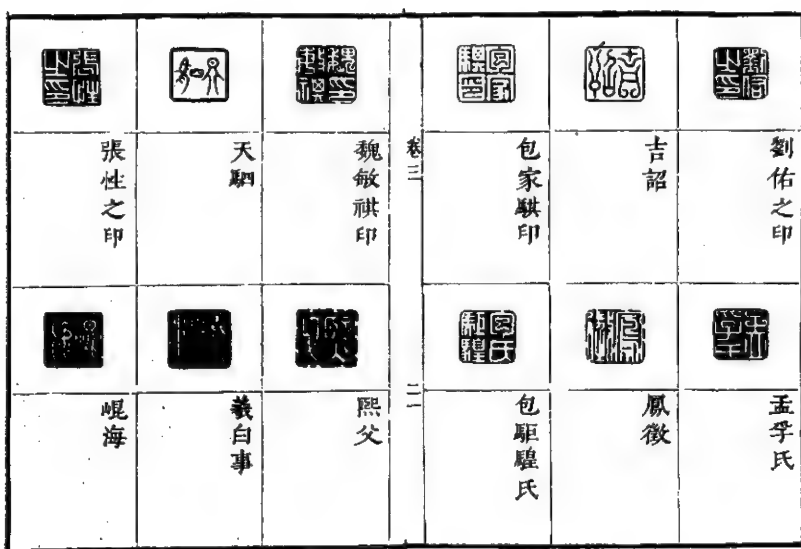 劉佑之印
吉詔
包家騏印
孟孚氏
鳳徵
包駏騜氏
卷三
二
魏敏祺印
天駟
張性之印
熙父
羲白事
崐海